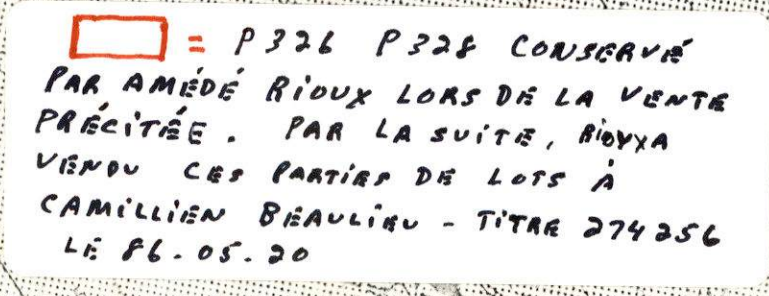 = P326 P328 CONSERVÉ
PAR AMÉDÉ RIOUX LORS DE LA VENTE
PRÉCITÉE. PAR LA SUITE, RIOUX A
VENDU CES PARTIES DE LOTS À
CAMILLIEN BEAULIEU - TITRE 274256
LE 86.05.20